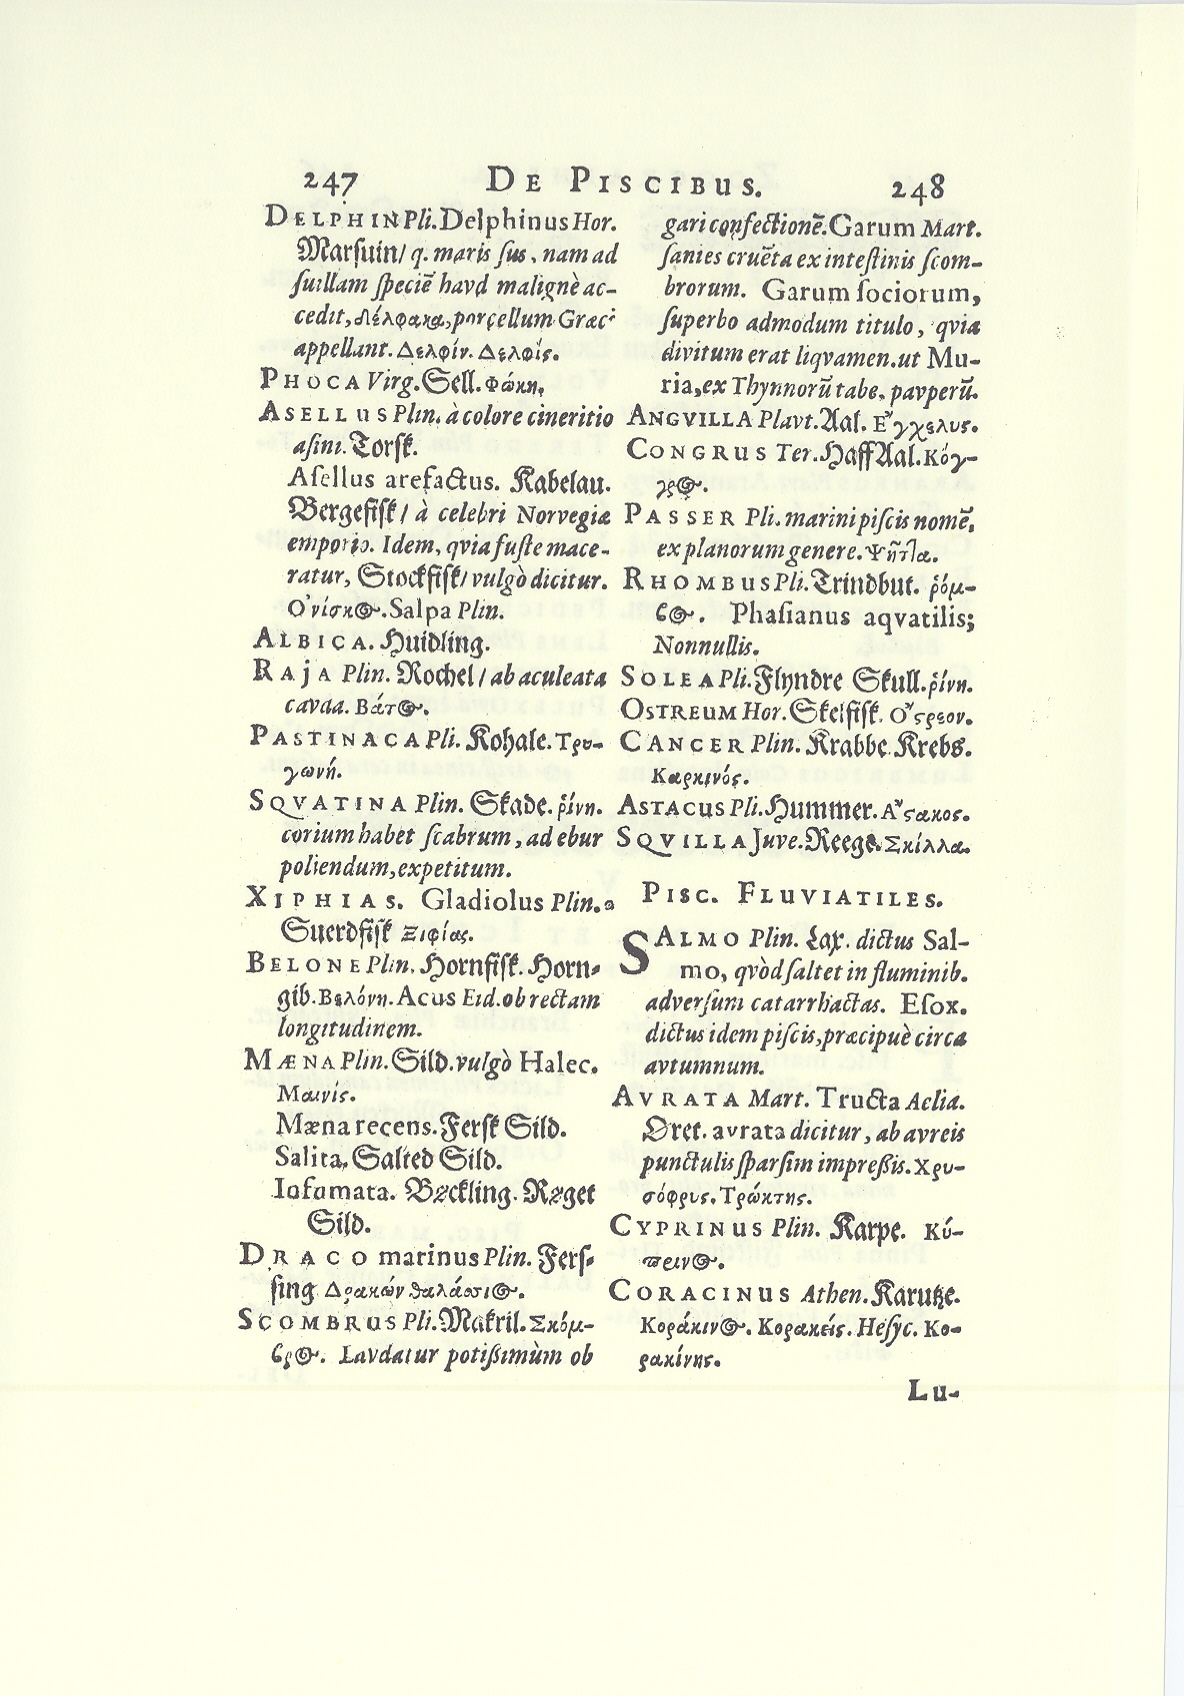 247 DE PISCIBUS. 248
DELPHIN Pli. Delphinus Hor.
Marſuin/ q. maris ſus, nam ad
ſuillam ſpeciẽ havd malignè ac-
cedit, δέλφακα, porcellum Græci
appellant. Δελφίν. Δελφίς.
PHOCA Virg. Sell. Φώκη.
ASELLUS Plin. à colore cineritio
aſini. Torſk.
Aſellus arefactus. Kabelau.
Bergefiſk/ à celebri Norvegiæ
emporio. Idem, qvia fuſte mace-
ratur, Stockfiſk/ vulgò dicitur.
Ὀνίσκος. Salpa Plin.
ALBICA. Huidling.
RAJA Plin. Rochel/ ab aculeata
cavda. Βάτος.
PASTINACA Pli. Kohale. Τρυ-
γωνή.
SQVATINA Plin. Skade. ῥίνη.
corium habet ſcabrum, ad ebur
poliendum, expetitum.
XIPHIAS. Gladiolus Plin.
Suerdfiſk Ξιφίας.
BELONE Plin. Hornfiſk. Horn-
gib. Βελόνη. Acus Eid. ob rectam
longitudinem.
MÆNA Plin. Sild. vulgò Halec.
Μαινίς.
Mæna recens. Ferſk Sild.
Salita. Salted Sild.
Infumata. Bøckling. Røget
Sild.
DRACO marinus Plin. Ferſ-
ſing Δρακών θαλάσσιος.
SCOMBRUS Pli. Makril. Σκόμ-
βρος. Lavdatur potißimùm ob
gari confectionẽ. Garum Mart.
ſanies cruẽta ex inteſtinis ſcom-
brorum. Garum ſociorum,
ſuperbo admodum titulo, qvia
divitum erat liqvamen. ut Mu-
ria, ex Thynnorũ tabe, pavperũ.
ANGVILLA Plavt. Aal. Ἔγχελυς.
CONGRUS Ter. Haff Aal. Κόγ-
γρος.
PASSER Pli. marini piſcis nomẽ,
ex planorum genere. Ψῆττα.
RHOMBUS Pli. Trindbut. ῥόμ-
βος. Phaſianus aqvatilis;
Nonnullis.
SOLEA Pli. Flyndre Skull. ῥίνη.
OSTREUM Hor. Skelfiſk. Ὄστρεον.
CANCER Plin. Krabbe. Krebs.
Καρκινός.
ASTACUS Pli. Hummer. Ἄστακος.
SQVILLA Juve. Reege. Σκίλλα.
PISC. FLUVIATILES.
SALMO Plin. Lax. dictus Sal-
mo, qvòd ſaltet in fluminib.
adverſum catarrhactas. Eſox.
dictus idem piſcis, præcipuè circa
avtumnum.
AVRATA Mart. Tructa Aelia.
Øret. avrata dicitur, ab avreis
punctulis ſparſim impreßis. Χρυ-
σόφρυς. Τρώκτης.
CYPRINUS Plin. Karpe. Κύ-
πρινος.
CORACINUS Athen. Karutze.
Κοράκινος. Κορακεύς. Heſyc. Κο-
ρακίνης.
Lu-